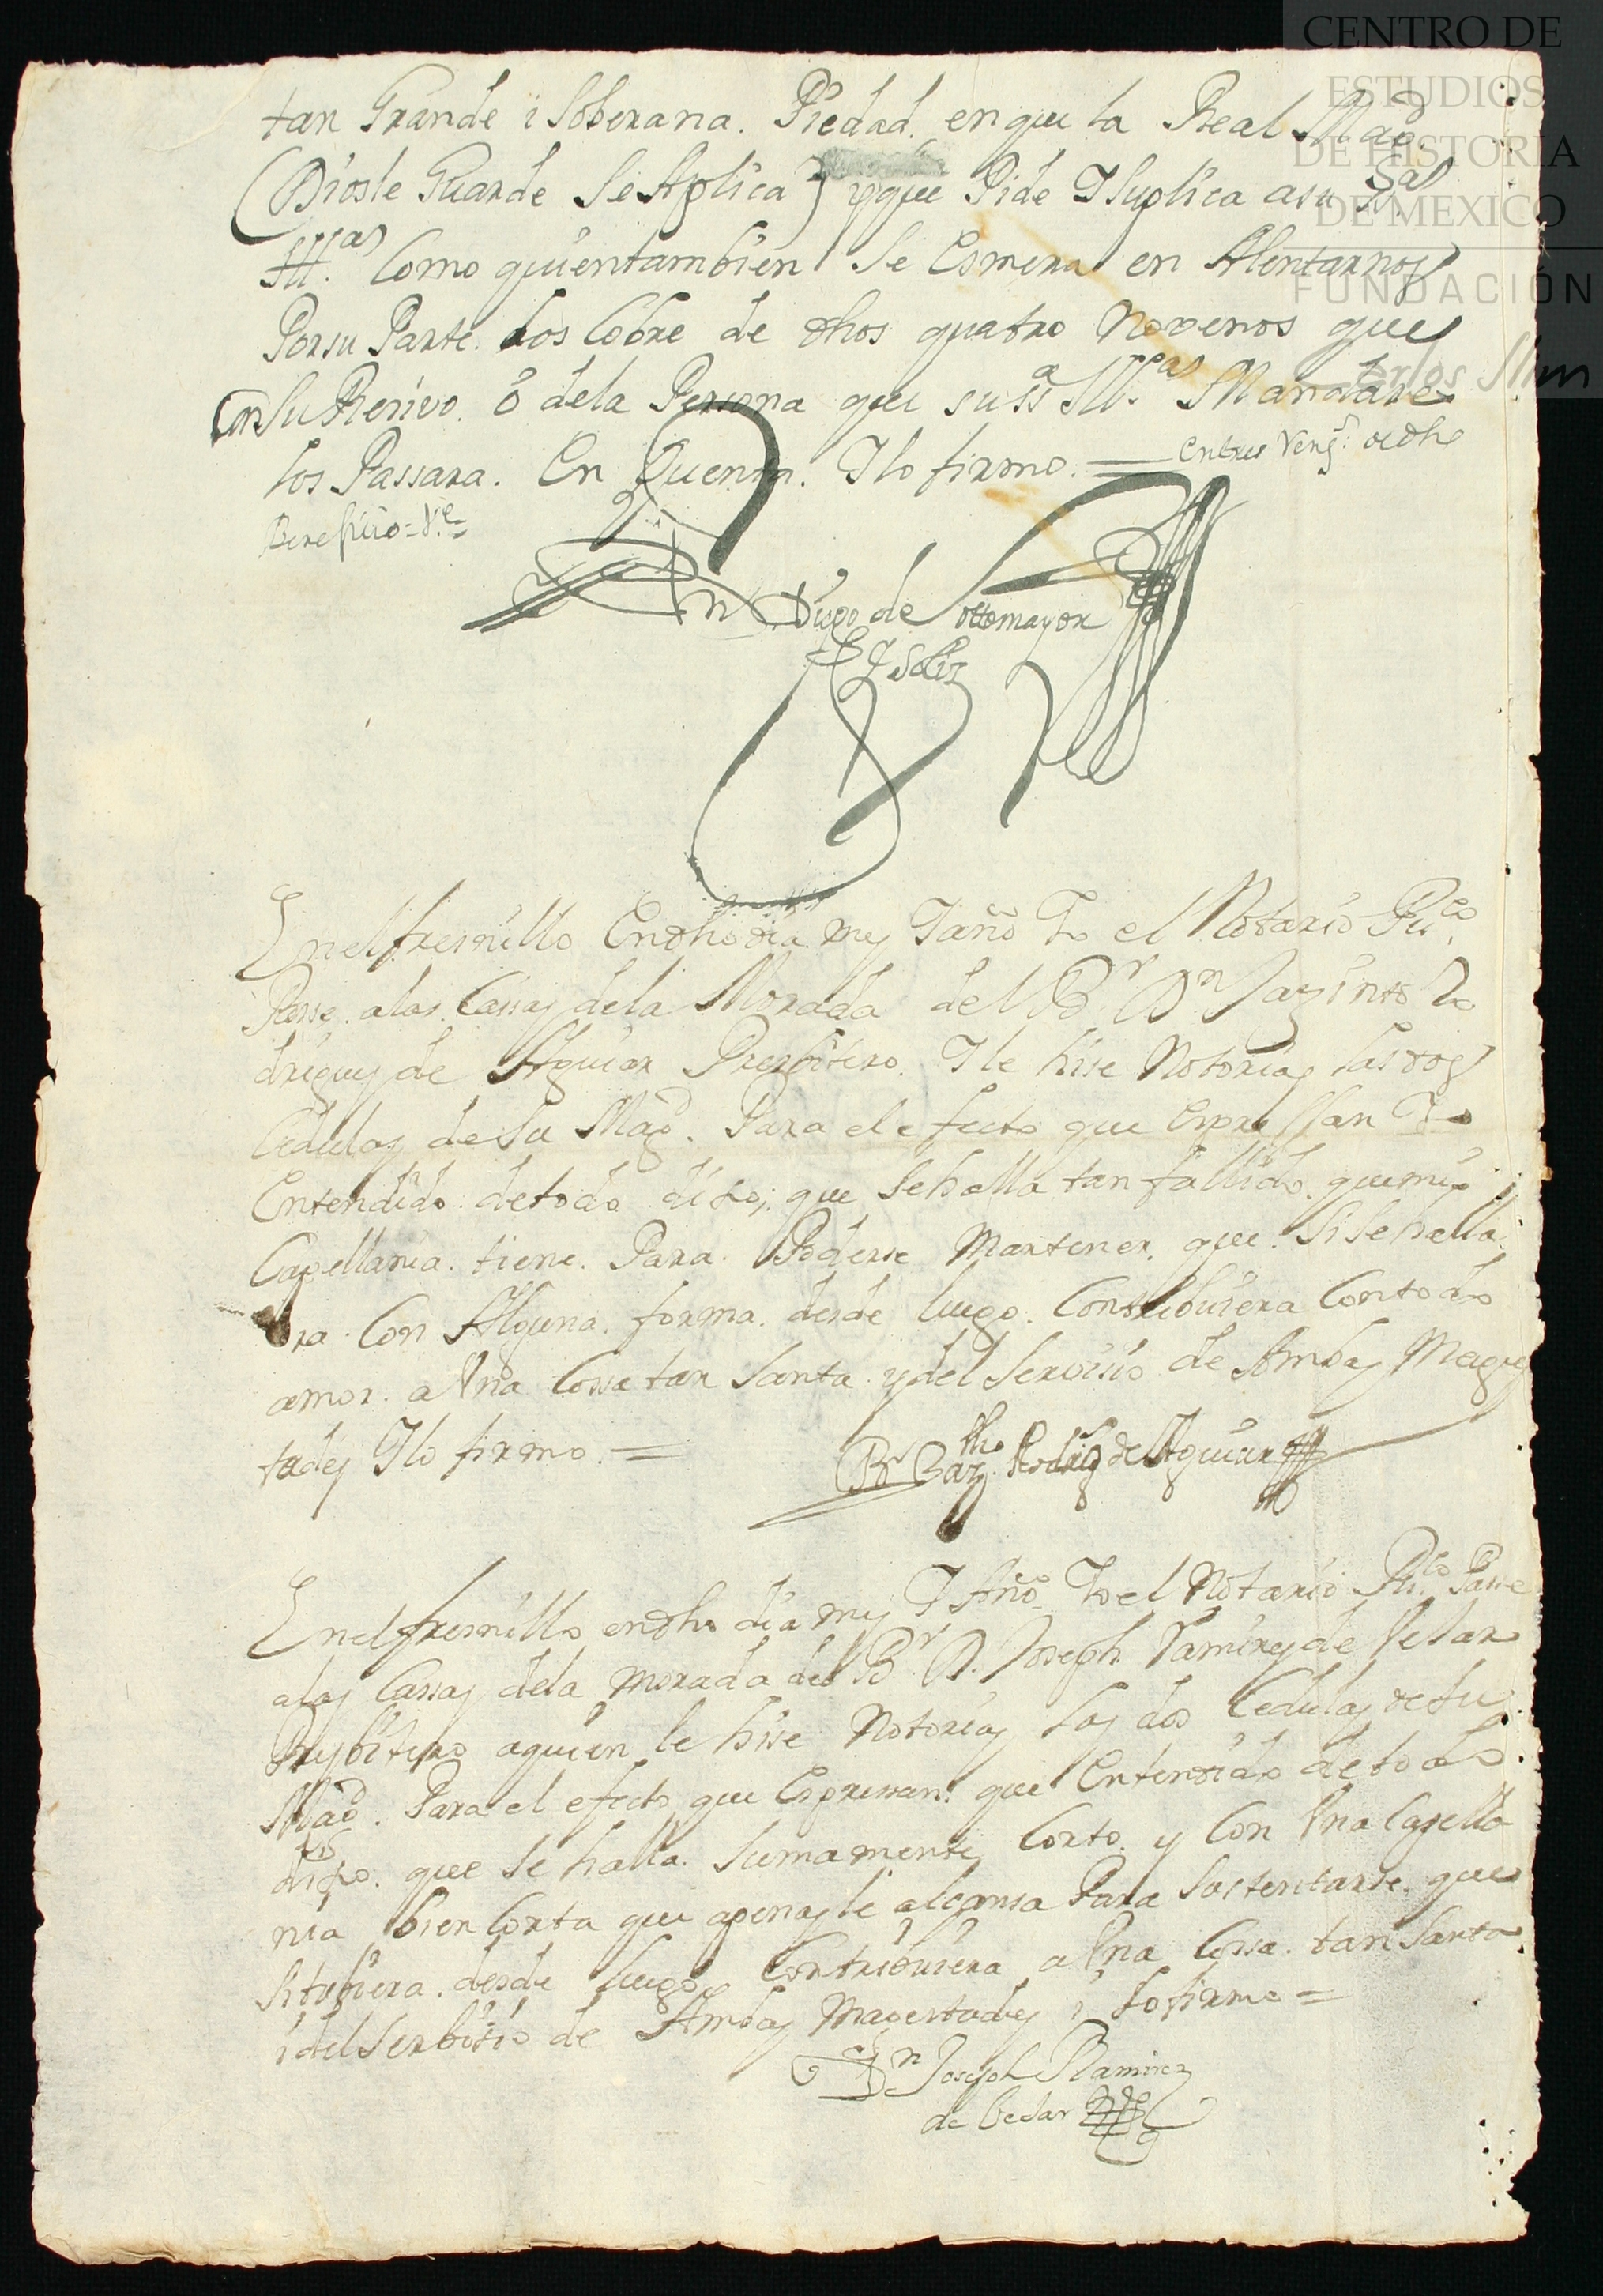 CENTRO DE
ESTUDIOS
DE HISTORIA
DE MEXICO
FUNDACIÓN
Carlos Slim
tan Grande i Soberana. Piedad. en que la Real Magd.
(Dios le Guarde Se Aplica) y que Pide Y Suplica a su Sa.
Illma. Como quien tambien Se Esmera en Alentarnos
Por su Parte. los Cobre de dhos quatro Novenos que
Con Su Resivo. ó de la Persona que su Sa Illma. Mandare
los Passara. En Quenta. Y lo firmo. = entre Reng.s de dho
Benefisio = Ve.
Dn Diego de Sottomayor
Y Solis
En el fresnillo En dho dia mes Y año Yo el Notario Puco.
Passe. a las Cassas de la Morada del Br. Dn Jazinto Ro
drigues de Aguiar Prezbitero. Y le hise Notorias las dos
Cedulas de Su Magd. Para el efecto que Espressan Y
Entendido de todo dixo; que Se halla tan fallido que mi
Capellania. tiene. Para. Poderse Mantener. que. Si Se halla
ra. Con Alguna. forma. desde luego. Contribuiera Con todo
amor. a Una Cossa tan Santa. y del Servisio de Ambas Mages
tades Y lo firmo. =
Br Jazto. Rodrigz de Aguiar
En el fresnillo en dho dia mes Y Año Yo el Notario Puco. Passe
a las Cassas de la Morada del Br. D. Joseph Ramires de Besar
Presbitero a quien le hise Notorias las dos Cedulas de Su
Magd. Para el efecto que Espressan. que Entendido de todo
dixo. que se halla. Sumamente Corto. y Con Una Capella
nia bien Corta que apenas le alcansa Para Sustentarse. que
Si tubiera. desde luego Contribuiera a Una Cossa. tan Santa
i del Serbisio de Ambas Magestades i lo firmo =
Dn Joseph Ramirez
de besar